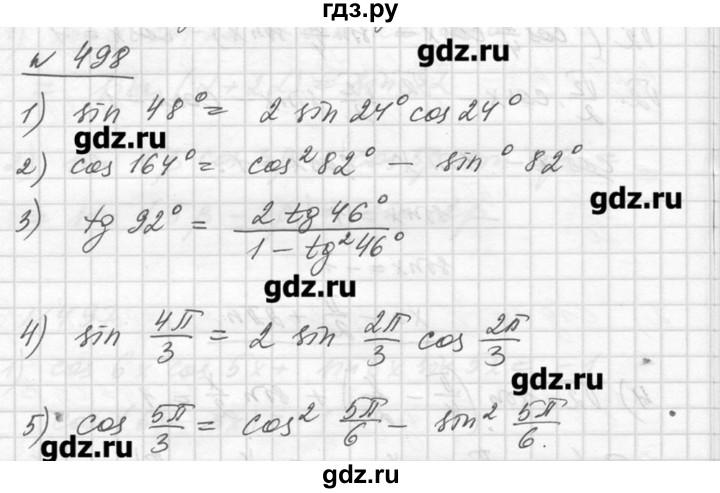 гдз.ру
N 498
gdz.ru
1) sin 48° = 2 sin 24° cos 24°
gdz.ru
2) cos 164° = cos² 82° – sin° 82°
gdz.ru
3) tg 92° = 2 tg 46° / 1 – tg² 46°
gdz.ru
4) sin 4π/3 = 2 sin 2π/3 cos 2π/3
gdz.ru
5) cos 5π/3 = cos² 5π/6 – sin² 5π/6.
gdz.ru
gdz.ru